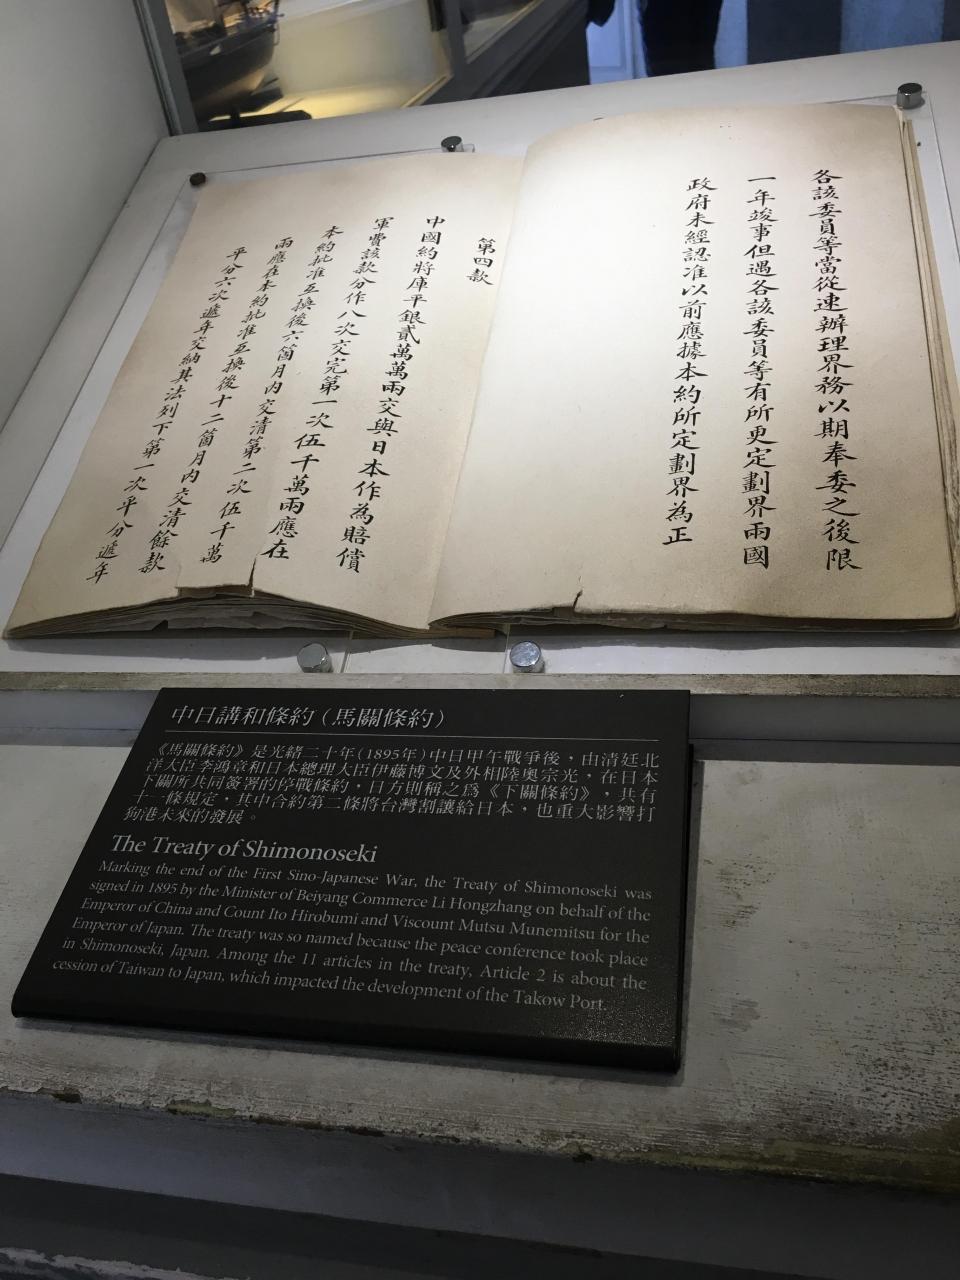 各該委員等當從速辦理界務以期奉委之後限
一年竣事但遇各該委員等有所更定劃界兩國
政府未經認准以前應據本約所定劃界為正
第四款
中國約將庫平銀貳萬萬兩交與日本作為賠償
軍費該款分作八次交完第一次伍千萬兩應在
本約批准互換後六箇月內交清第二次伍千萬
兩應在本約批准互換後十二箇月內交清餘款
平分六次遞年交納其法列下第一次平分遞年
中日講和條約（馬關條約）
《馬關條約》是光緒二十年（1895年）中日甲午戰爭後，由清廷北
洋大臣李鴻章和日本總理大臣伊藤博文及外相陸奧宗光，在日本
下關所共同簽署的停戰條約，日方則稱之為《下關條約》，共有
十一條規定，其中合約第二條將台灣割讓給日本，也重大影響打
狗港未來的發展。
The Treaty of Shimonoseki
Marking the end of the First Sino-Japanese War, the Treaty of Shimonoseki was
signed in 1895 by the Minister of Beiyang Commerce Li Hongzhang on behalf of the
Emperor of China and Count Ito Hirobumi and Viscount Mutsu Munemitsu for the
Emperor of Japan. The treaty was so named because the peace conference took place
in Shimonoseki, Japan. Among the 11 articles in the treaty, Article 2 is about the
cession of Taiwan to Japan, which impacted the development of the Takow Port.